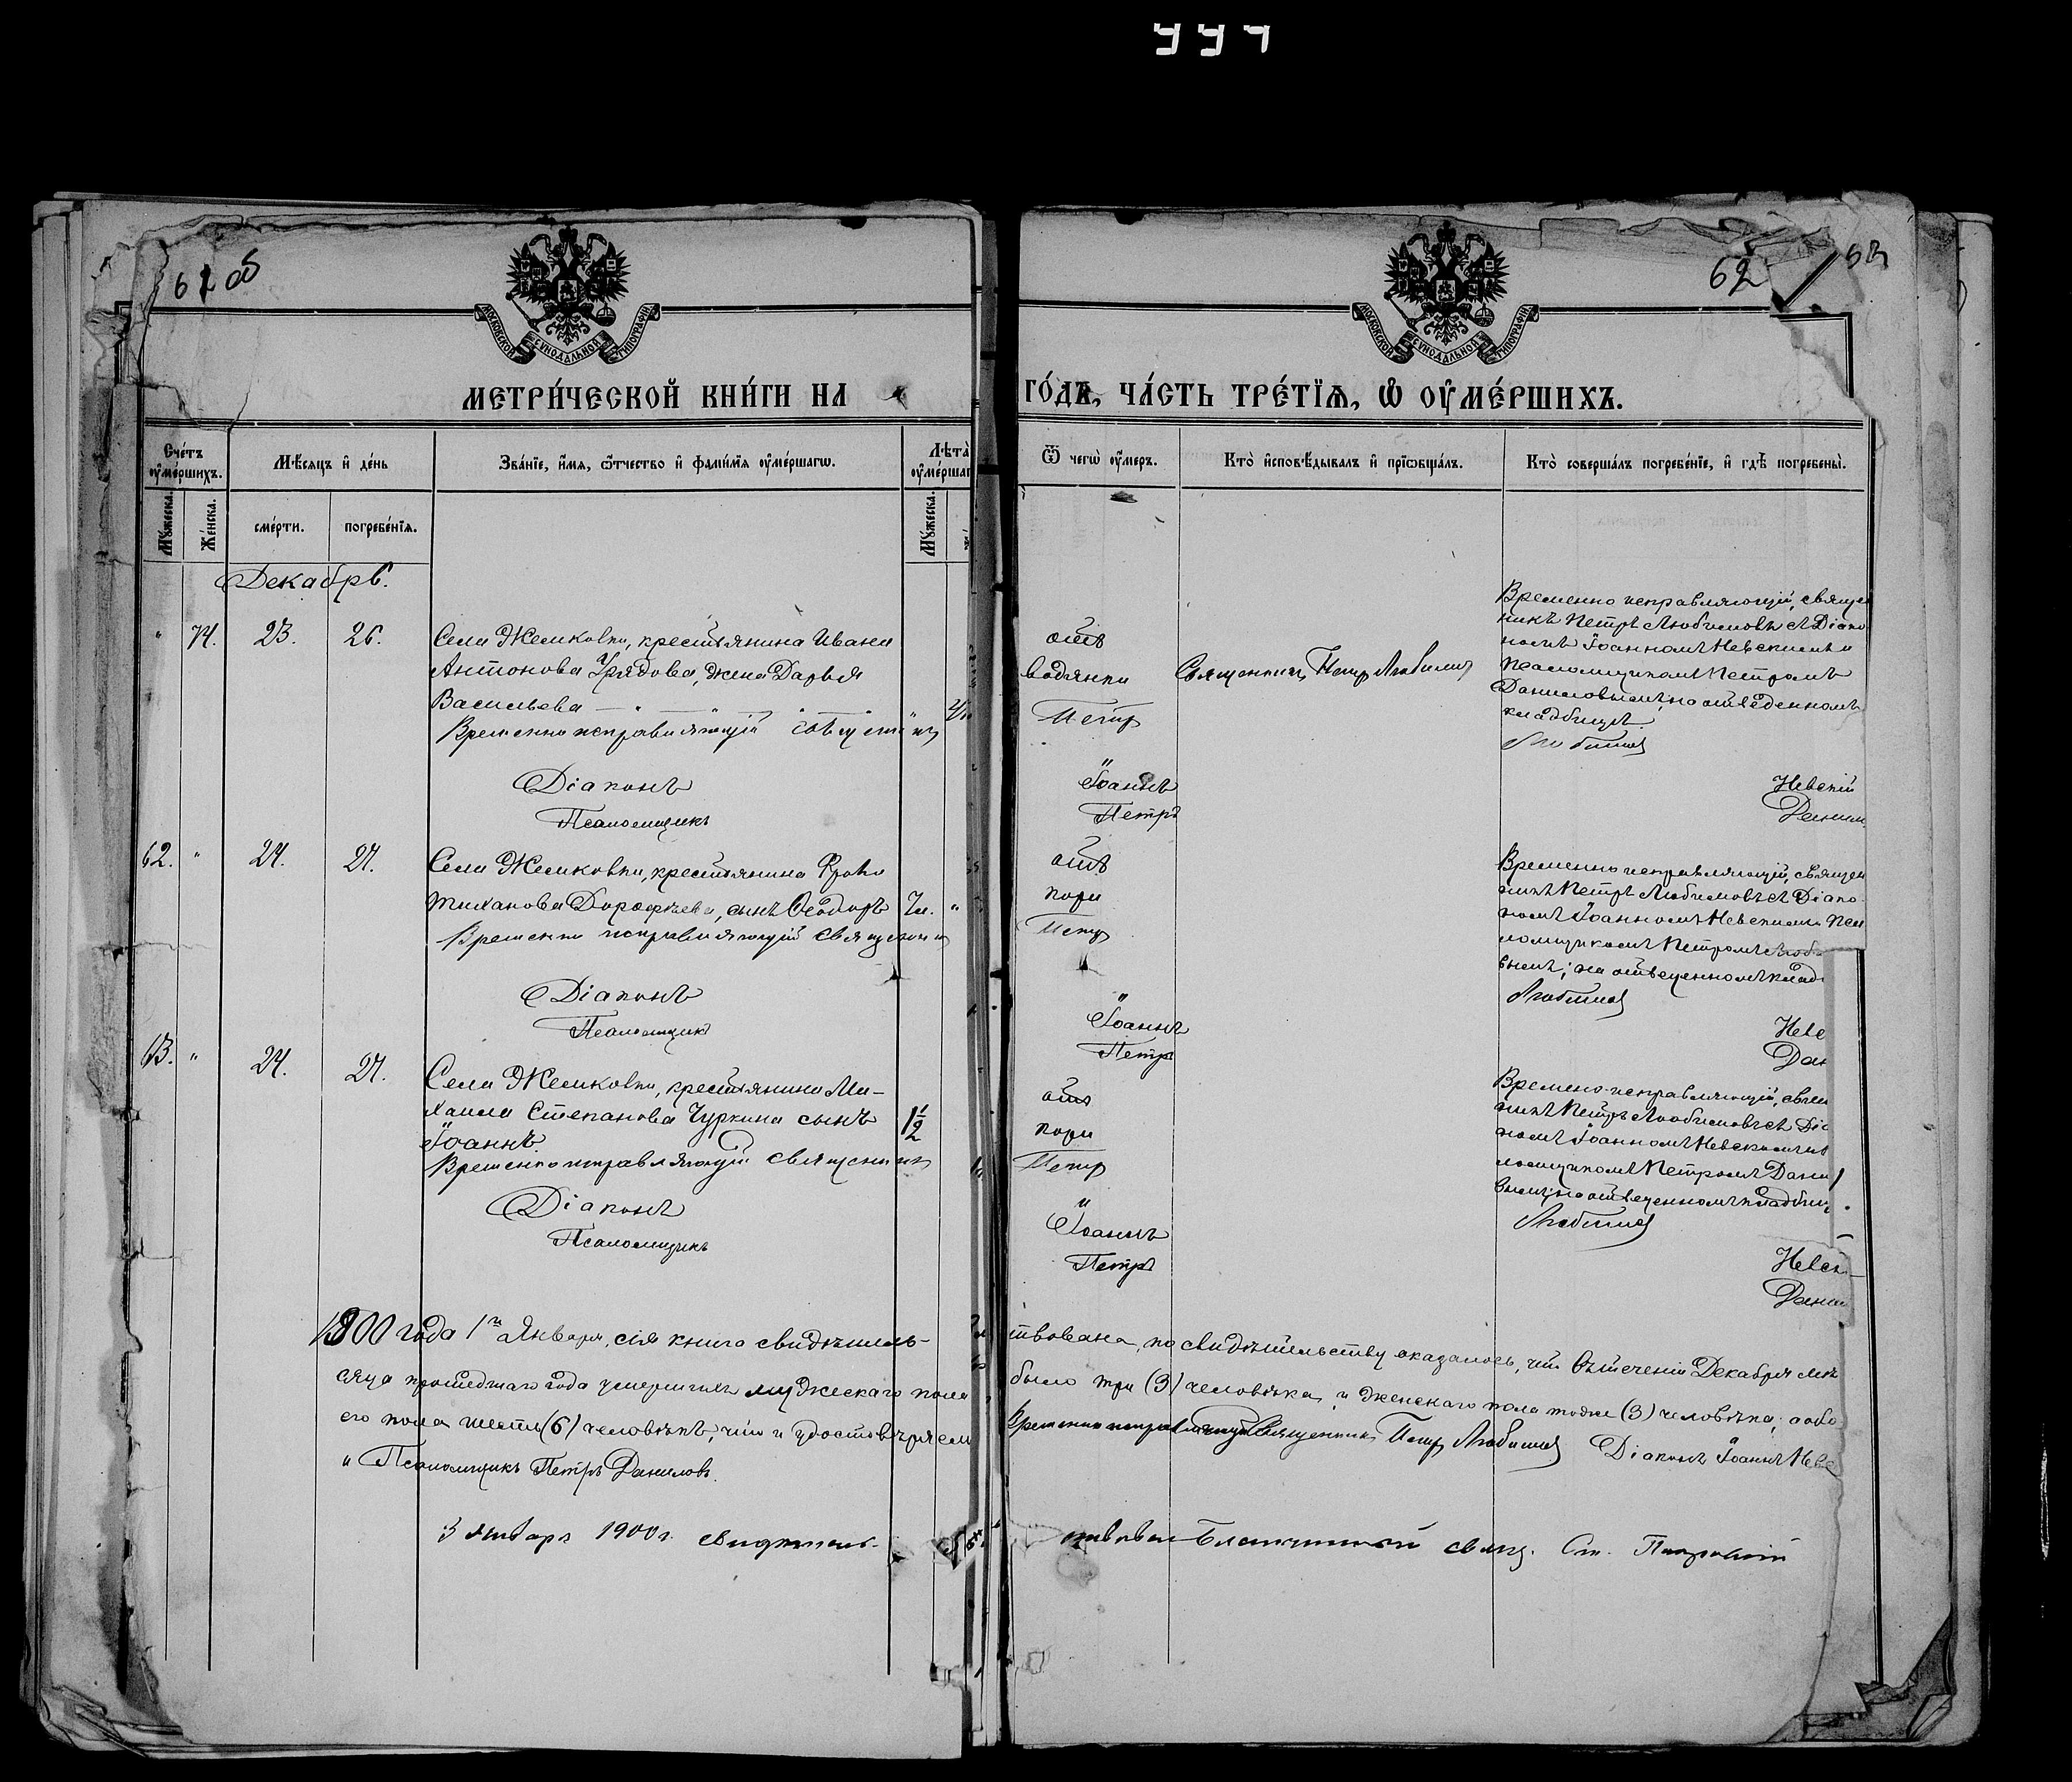 62 об
62
МОСКОВСКОЙ СУНОДАЛЬНОЙ ТИПОГРАФІИ
МОСКОВСКОЙ СУНОДАЛЬНОЙ ТИПОГРАФІИ
МЕТРИ́ЧЕСКОЙ КНИ́ГИ НА
ГО́ДЪ, ЧА́СТЬ ТРЕ́ТІѦ, Ѡ҆ ОУ҆МЕ́РШИХЪ.
Сче́тъ оу҆ме́ршихъ.
Мѣ́сяцъ и҆ де́нь
Зва́нїе, и҆́мя, ѻ҆́тчество и҆ фами́лїя оу҆ме́ршагѡ.
Лѣта̀ оу҆ме́ршаг
Ѿ чегѡ̀ оу҆́меръ.
Кто̀ и҆сповѣ́дывалъ и҆ прїѡбща́лъ.
Кто̀ соверша́лъ погребе́нїе, и҆ гдѣ̀ погребены̀.
Мꙋ́жеска.
Же́нска.
сме́рти.
погребе́нїя.
Мꙋ́жеска.
Декабрь.
" 74. 23. 26.
Села Жемковки, крестьянина Ивана
Антонова Урядова, жена Дарья
Васильева
Временно исправляющій священникъ
Діаконъ
Псаломщикъ
отъ
водянки
Петръ
Іоаннъ
Петръ
Священникъ Петръ Любимовъ
Временно исправляющій, священ
никъ Петръ Любимовъ съ Діако
номъ Іоанномъ Невскимъ и
псаломщикомъ Петромъ
Даниловымъ; на отведенномъ
кладбищѣ.
Любимовъ
Невскій
Данил
62. " 24. 27.
Села Жемковки, крестьянина
Тиханова Дорофѣева, сынъ Ѳеодоръ "
Временно исправляющій священник
Діаконъ
Псаломщикъ
отъ
кори
Петръ
Іоаннъ
Петръ
Временно исправляющій, священ
никъ Петръ Любимовъ съ Діако
номъ Іоанномъ Невскимъ и пса
ломщикомъ Петромъ
вымъ; на отведенномъ клад
Любимовъ
Невс
Дан
63. " 24. 27.
Села Жемковки, крестьянина Ми-
хаила Степанова Чуркина сынъ 1 1/2
Іоаннъ.
Временно исправляющій священникъ
Діаконъ
Псаломщикъ
отъ
кори
Петръ
Іоаннъ
Петръ
Временно исправляющій, свящ
никъ Петръ Любимовъ съ Діа
номъ Іоанномъ Невскимъ и
ломщикомъ Петромъ Данил
вымъ; на отведенномъ кладбищ
Любимовъ
Невск
Данил
1900 года 1го Января, сія книга свидѣтель-
ствована, по свидѣтельству оказалось, что въ теченіи Декабря мѣ
сяца прошедшаго года умершихъ мужескаго пола
было три (3) человѣка, и женскаго пола тоже (3) человѣка; а обо
его пола шесть (6) человѣкъ, что и удостовѣряемъ
Временно исправляющій Священникъ Петръ Любимовъ Діаконъ Іоаннъ Невс
и Псаломщикъ Петръ Даниловъ.
3 Января 1900 г. свидѣтель-
ствовалъ Благочинный свящ.